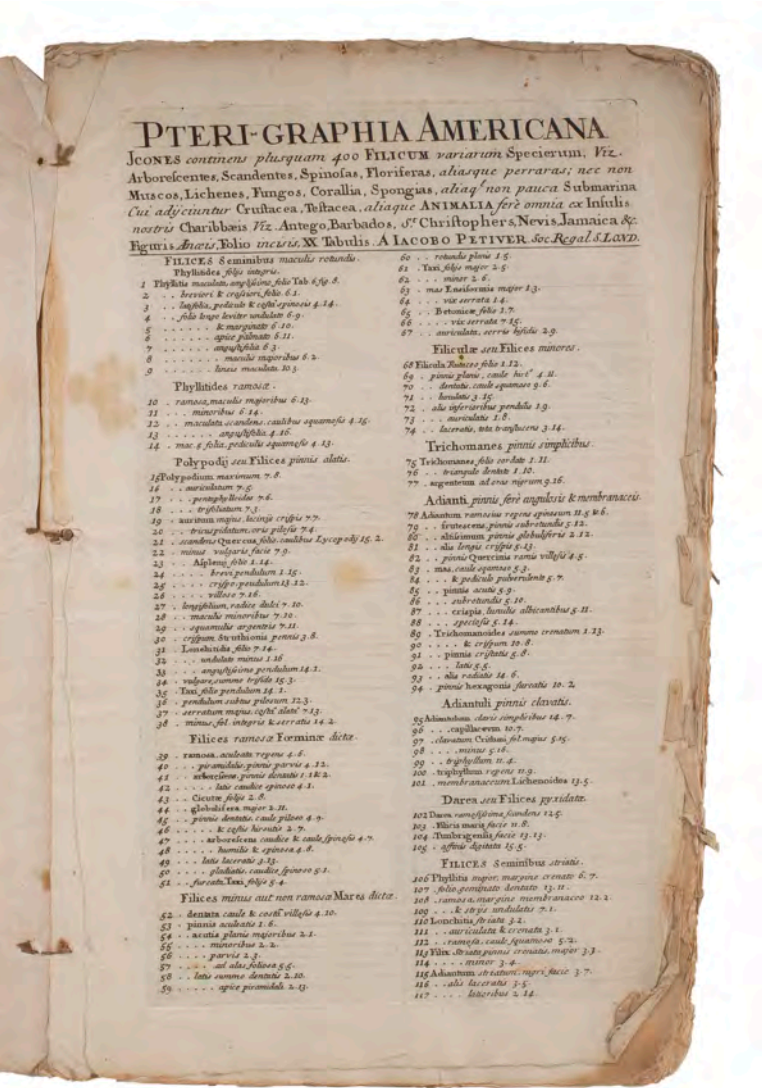 PTERI-GRAPHIA AMERICANA
ICONES continens plusquam 400 FILICUM variarum Specierum, Viz.
Arborescentes, Scandentes, Spinosas, Floriferas, aliasque perraras; nec non
Muscos, Lichenes, Fungos, Corallia, Spongias, aliaq. non pauca Submarina
Cui adjiciuntur Crustacea, Testacea, aliaque ANIMALIA ferè omnia ex Insulis
nostris Charibbæis Viz. Antego, Barbados, St. Christophers, Nevis, Jamaica &c.
Figuris Æneis, Folio incisis, XX Tabulis. A IACOBO PETIVER. Soc. Regal. S. LOND.
FILICES Seminibus maculis rotundis.
Phyllitides folijs integris.
1 Phyllitis maculata, amplissimo folio Tab 6 fig. 8.
2 . . breviori & crassiori folio 6.1.
3 . . latifolia, pedicule & costâ spinosis 4.14.
4 . . folio longe leviter undulato 6.9.
5 . . . . . . & marginato 6.10.
6 . . . . . . apice palmato 6.11.
7 . . . . . . angustifolia 6.3.
8 . . . . . . . maculis majoribus 6.2.
9 . . . . . . lineis maculata 10.3.
Phyllitides ramosæ.
10 . ramosa, maculis majoribus 6.13.
11 . . . minoribus 6.14.
12 . . maculata scandens, caulibus squamosis 4.15.
13 . . . . . . angustifolia 4.16.
14 . mac. & folia, pediculis squamosis 4.13.
Polypodij seu Filices pinnis alatis.
15 Polypodium maximum 7.8.
16 . . auriculatum 7.5.
17 . . . pentaphylloides 7.6.
18 . . . trifoliatum 7.3.
19 . auritum majus, lacinijs crispis 7.7.
20 . . . tricuspidatum, oris pilosis 7.4.
21 . scandens Quercus folio, caulibus Lycopodij 15.2.
22 . minus vulgaris facie 7.9.
23 . . Asplenij folio 1.14.
24 . . . . brevi pendulum 1.15.
25 . . . . crispo pendulum 13.12.
26 . . . . villoso 7.16.
27 . longifolium, radice dulci 7.10.
28 . . maculis minoribus 7.10.
29 . . squamulis argenteis 7.11.
30 . crispum Struthionis pennis 3.8.
31 . Lonchitidis folio 7.14.
32 . . . undulato minus 1.16
33 . . . angustissimo pendulum 14.2.
34 . vulgare, summo trifido 15.3.
35 . Taxi folio pendulum 14.1.
36 . pendulum subtus pilosum 12.3.
37 . serratum majus, costâ alatâ 7.13.
38 . minus, fol. integris & serratis 14.2.
Filices ramosæ Fœminæ dictæ.
39 . ramosa, aculeata repens 4.6.
40 . . . piramidalis, pinnis parvis 4.12.
41 . . arborescens, pinnis dentatis 1.1 & 2.
42 . . . . . latis caudice spinoso 4.1.
43 . . Cicutæ folijs 2.8.
44 . . globulifera major 2.11.
45 . . pinnis dentatis, caule piloso 4.9.
46 . . . . . & costis hirsutis 2.7.
47 . . . arborescens caudice & caule spinosis 4.7.
48 . . . . humilis & spinosa 4.8.
49 . . . latis laceratis 3.13.
50 . . . . gladiatis, caudice spinoso 5.1.
51 . . furcata, Taxi folijs 5.4.
Filices minus aut non ramosæ Mares dictæ.
52 . dentata caule & costâ villosis 4.10.
53 . pinnis aculeatis 1.6.
54 . . acutis planis majoribus 2.1.
55 . . . . minoribus 2.2.
56 . . . . parvis 2.3.
57 . . . . ad alas foliosa 5.5.
58 . . latis summo dentatis 2.10.
59 . . . . . apice piramidali 2.13.
60 . . rotundis planis 1.5.
61 . Taxi folijs major 2.5.
62 . . . . minor 2.6.
63 . mas Ensiformis major 1.3.
64 . . . . vix serrata 1.4.
65 . . Betonicæ folio 1.7.
66 . . . . vix serrata 7.15.
67 . . auriculata, serris bifidis 2.9.
Filiculæ seu Filices minores.
68 Filicula Rutaceo folio 1.12.
69 . pinnis planis, caule hirto 4.11.
70 . . dentatis, caule squamoso 9.6.
71 . . lunulatis 3.15.
72 . alis inferioribus pendulis 1.9.
73 . . . auriculatis 1.8.
74 . . laceratis, tota translucens 3.14.
Trichomanes pinnis simplicibus.
75 Trichomanes folio cordato 1.11.
76 . . triangulo dentato 1.10.
77 . . argenteum ad oras nigrum 9.16.
Adianti pinnis ferè angulosis & membranaceis.
78 Adiantum ramosius repens spinosum 11.5 & 6.
79 . . frutescens, pinnis subrotundis 5.12.
80 . . altissimum pinnis globuliferis 2.12.
81 . . alis longis crispis 5.13.
82 . . pinnis Quercinis ramis villosis 4.5.
83 . mas, caule squamoso 5.3.
84 . . . & pediculo pulverulento 5.7.
85 . . pinnis acutis 5.9.
86 . . . subrotundis 5.10.
87 . . . crispis, lunulis albicantibus 5.11.
88 . . . speciosis 5.14.
89 . Trichomanoides summo crenatum 1.13.
90 . . . . & crispum 10.8.
91 . . pinnis cristatis 5.8.
92 . . . latis 5.5.
93 . . alis radiatis 14.6.
94 . pinnis hexagonis furcatis 10.2.
Adiantuli pinnis clavatis.
95 Adiantulum clavis simplicibus 14.7.
96 . . . capillaceum 10.7.
97 . clavatum Crithmi fol. majus 5.15.
98 . . . . minus 5.16.
99 . . triphyllum 11.4.
100 . triphyllum repens 11.9.
101 . membranaceum Lichenoides 13.5.
Darea seu Filices pyxidatæ.
102 Darea ramosissima scandens 12.5.
103 . Filicis maris facie 11.8.
104 . Tunbrigensis facie 13.13.
105 . affinis digitata 15.5.
FILICES Seminibus striatis.
106 Phyllitis major, margine crenato 6.7.
107 . folio geminato dentato 13.11.
108 . ramosa, margine membranaceo 12.2.
109 . . . & strijs undulatis 7.1.
110 Lonchitis striata 3.2.
111 . . auriculata & crenata 3.1.
112 . . ramosa, caule squamoso 5.2.
113 Filix striata pinnis crenatis, major 3.3.
114 . . . . minor 3.4.
115 Adiantum striatum, nigri facie 3.7.
116 . . alis laceratis 3.5.
117 . . . . latioribus 2.14.